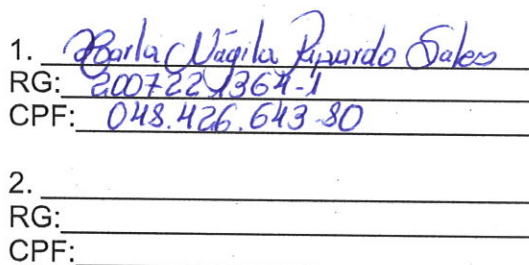 1. Karla Nágila Ripardo Sales
RG: 2007221364-1
CPF: 048.426.643-80
2.
RG:
CPF: